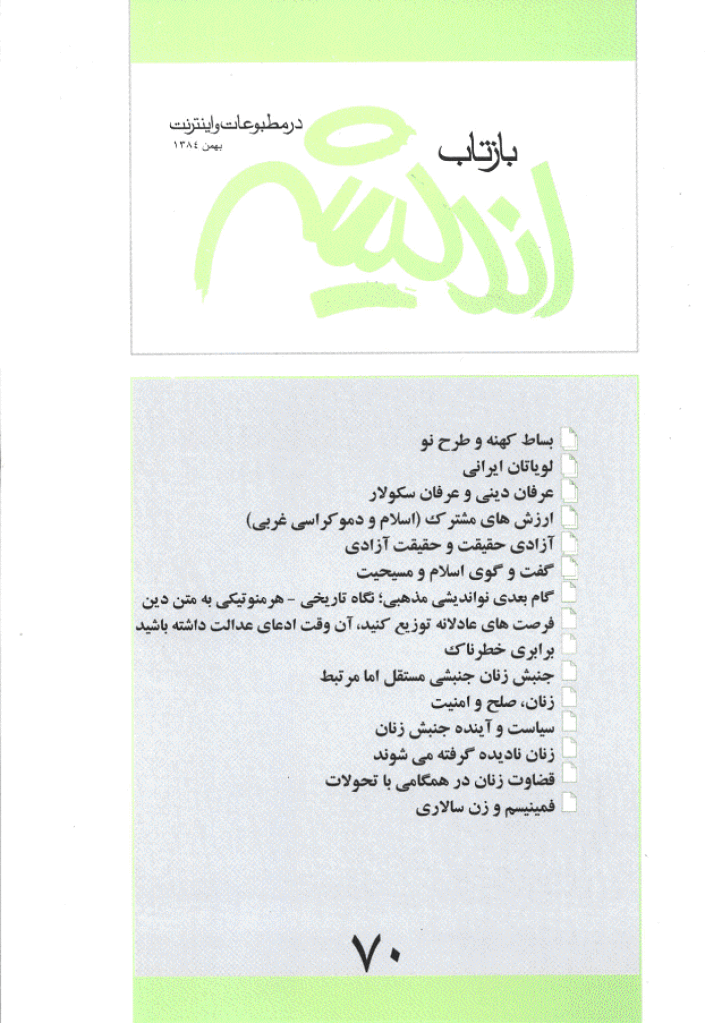 بازتاب
اندیشه
در مطبوعات و اینترنت
بهمن ۱۳۸٤
بساط کهنه و طرح نو
لویاتان ایرانی
عرفان دینی و عرفان سکولار
ارزش های مشترک (اسلام و دموکراسی غربی)
آزادی حقیقت و حقیقت آزادی
گفت و گوی اسلام و مسیحیت
گام بعدی نواندیشی مذهبی؛ نگاه تاریخی - هرمنوتیکی به متن دین
فرصت های عادلانه توزیع کنید، آن وقت ادعای عدالت داشته باشید
برابری خطرناک
جنبش زنان جنبشی مستقل اما مرتبط
زنان، صلح و امنیت
سیاست و آینده جنبش زنان
زنان نادیده گرفته می شوند
قضاوت زنان در همگامی با تحولات
فمینیسم و زن سالاری
۷۰